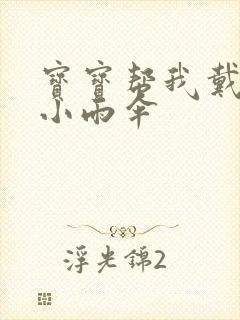 寶寶幫我戴
小雨傘
浮光錦2